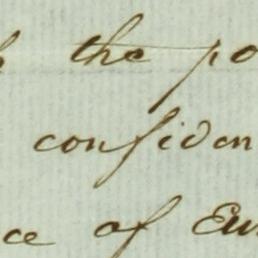 the po
confiden
ce of Eur